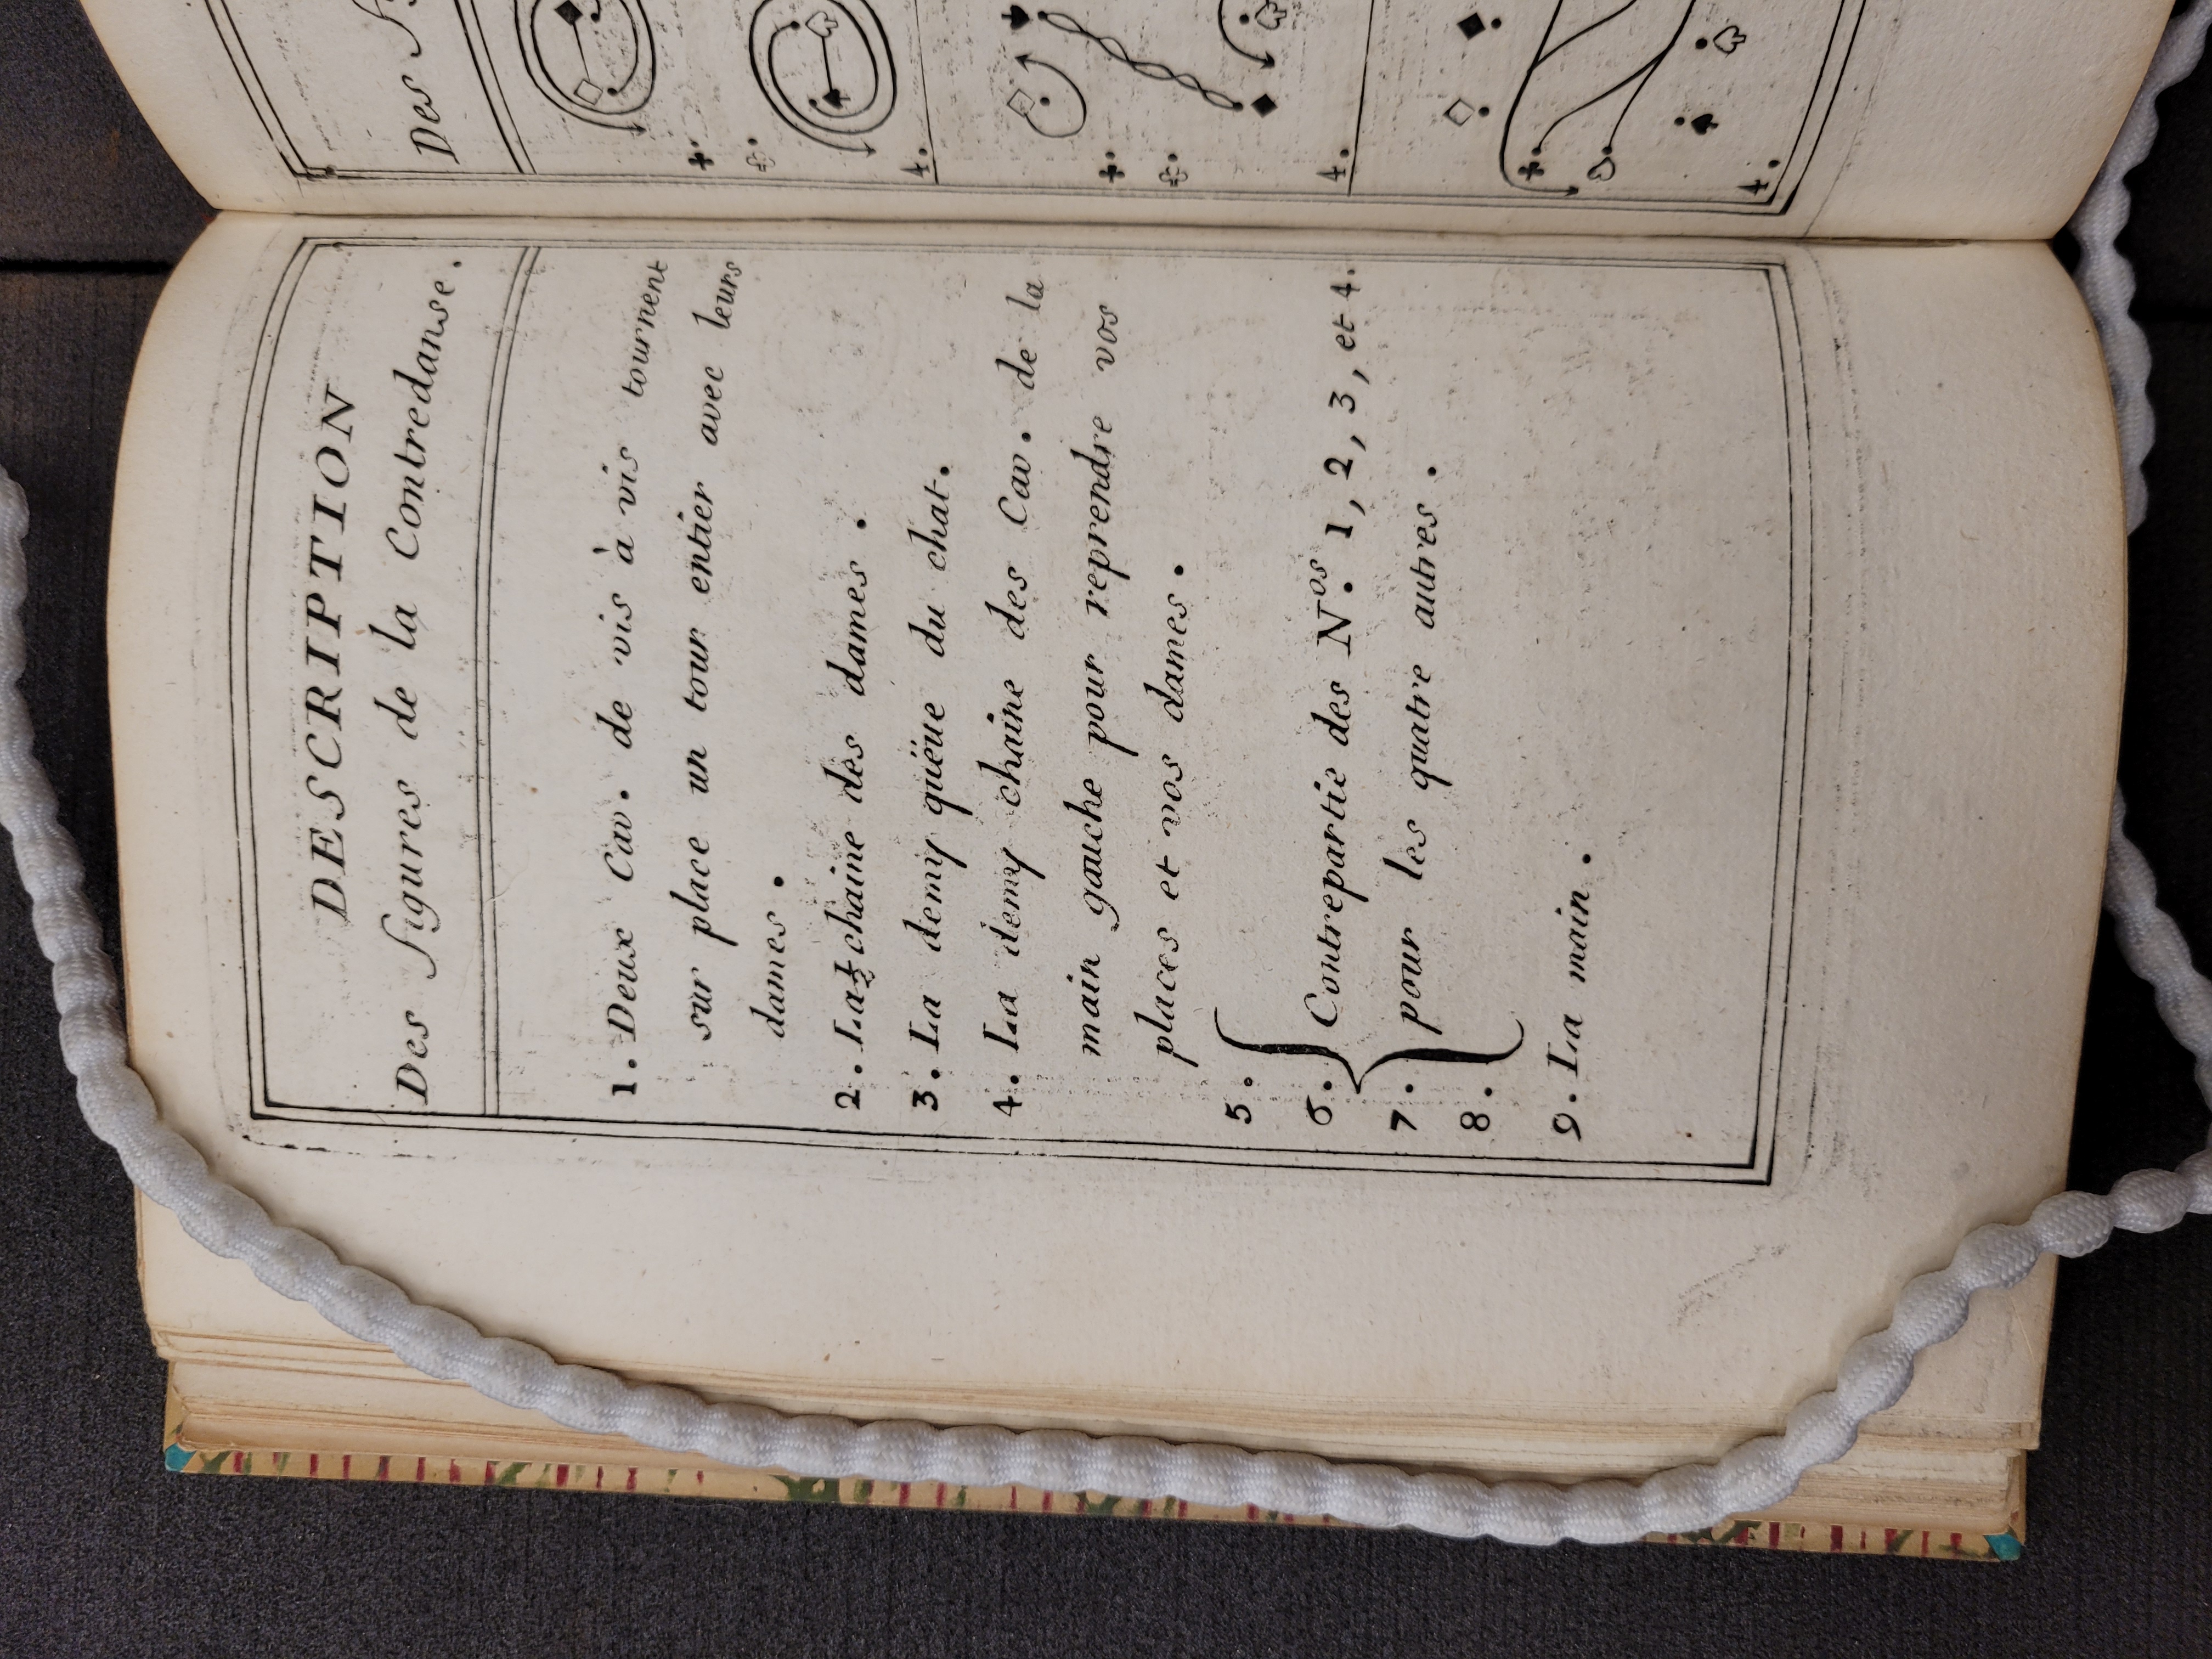 DESCRIPTION
Des figures de la Contredanse.
1. Deux Cav. de vis à vis tournent
sur place un tour entier avec leurs
dames.
2. La ½ chaine des dames.
3. La demy quëue du chat.
4. La demy chaine des Cav. de la
main gauche pour reprendre vos
places et vos dames.
5.
6. Contrepartie des N.os 1, 2, 3, et 4.
7. pour les quatre autres.
8.
9. La main.
Des
4.
4.
4.